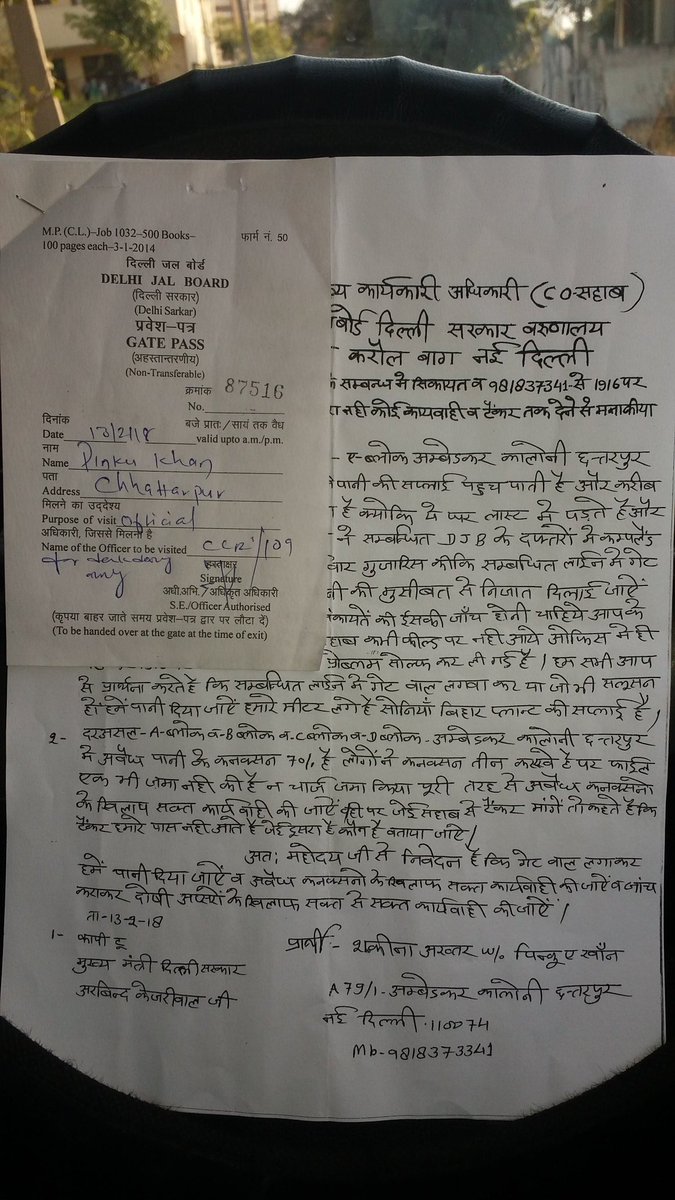 M.P. (C.L.)–Job 1032–500 Books–
100 pages each–3-1-2014
फार्म नं. 50
दिल्ली जल बोर्ड
DELHI JAL BOARD
(दिल्ली सरकार)
(Delhi Sarkar)
प्रवेश–पत्र
GATE PASS
(अहस्तान्तरणीय)
(Non-Transferable)
क्रमांक 87516
No.
दिनांक बजे प्रातः/सायं तक वैध
Date 13/2/18 valid upto a.m./p.m.
नाम
Name Pinku Khan
पता
Address Chhattarpur
मिलने का उद्देश्य
Purpose of visit official
अधिकारी, जिससे मिलना है
Name of the Officer to be visited CCR/109
हस्ताक्षर
Signature
अधी.अभि./अधिकृत अधिकारी
S.E./Officer Authorised
(कृपया बाहर जाते समय प्रवेश–पत्र द्वार पर लौटा दें)
(To be handed over at the gate at the time of exit)
कार्यकारी अधिकारी (CO-सहाब)
बोर्ड दिल्ली सरकार वरुणालय
करौल बाग नई दिल्ली
सम्बन्ध मे सिकायत व 981837341-से 1916 पर
नही कोई कार्यवाही व टैंकर तक देने से मनाकीया
- ए-ब्लोक अम्बेडकर कालोनी छत्तरपुर
पानी की सप्लाई पहुच पाती है और करीब
है क्योकि ये घर लास्ट मे पड़ते है और
ने सम्बधित DJB के दफ्तरों मे कम्पलेंट
गुजारिस कीकि सम्बधित लाईन मे गेट
की मुसीबत से निजात दिलाई जाऐं
की ईसकी जाँच होनी चाहिये आपके
कभी फील्ड पर नही आये ओफिस मे ही
प्रोब्लम सोल्फ कर ली गई है। हम सभी आप
से प्रार्थना करते है कि सम्बन्धित लाईन मे गेट वाल लगवा कर या जो भी सलूसन
हो। हमें पानी दिया जाऐं हमारे मीटर लगे है सोनियाँ बिहार प्लान्ट की सप्लाई है।
2- दरअसल-A-ब्लोक व-B ब्लोक व-C ब्लोक व-D ब्लोक- अम्बेडकर कालोनी छत्तरपुर
मे अवैध पानी के कनक्सन 70% है लोगोंने कनक्सन तीन करखे है पर फाईल
एक भी जमा नही की है न चार्ज जमा किया पूरी तरह से अवैध कनक्सनो
के खिलाप सक्त कार्यवाही की जाऐं वही पर जेई सहाब से टैंकर मांगें तो कहते है कि
टैंकर हमारे पास नही आते है जेई दुसरा है कौन है बताया जाऐं।
अतः महोदय जी से निवेदन है कि गेट वाल लगाकर
हमें पानी दिया जाऐं व अवैध कनक्सनो के खिलाफ सक्त कार्यवाही की जाऐं व जांच
कराकर दोषी अफ्सरों के खिलाफ सक्त से सक्त कार्यवाही की जाऐं।
ता-13-2-18
1- कापी टू
मुख्य मंत्री दिल्ली सरकार
अरबिन्द केजरीवाल जी
प्रार्थी:- शकीना अख्तर w/o पिन्कू ए खाँन
A 79/1- अम्बेडकर कालोनी छत्तरपुर
नई दिल्ली-110074
Mb-9818373341